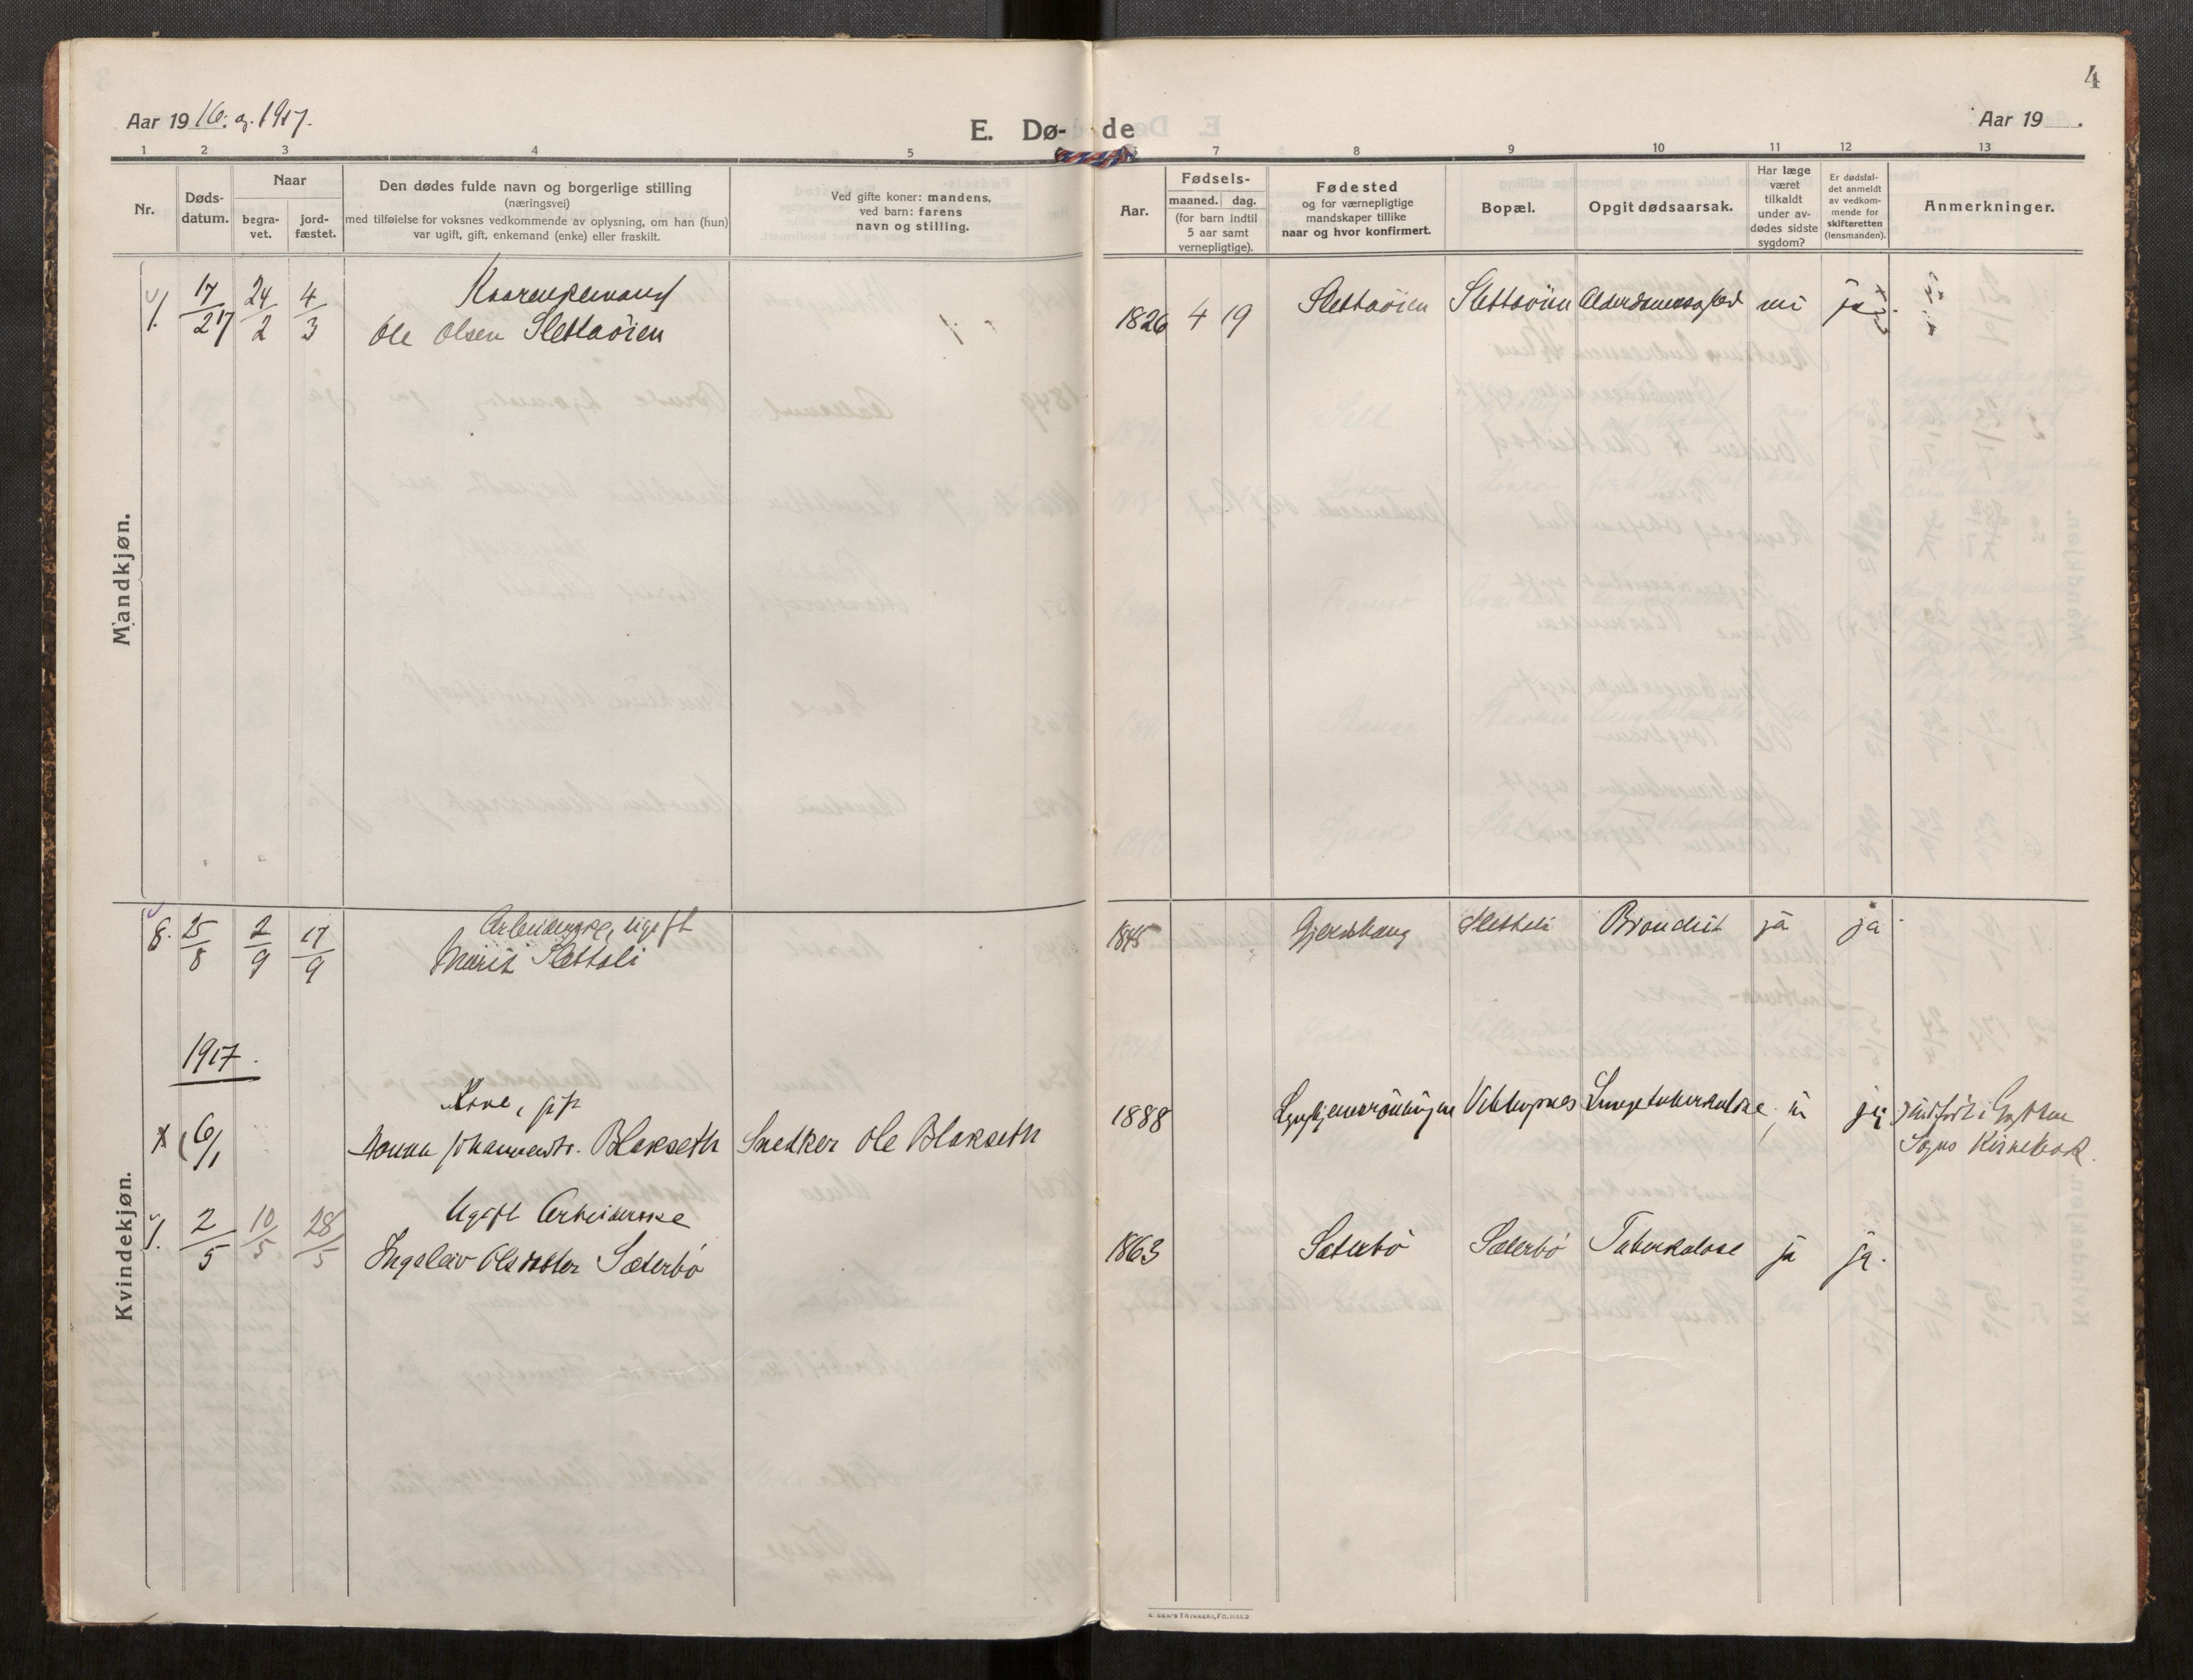 4
Aar 19 16. og. 1917.
E. Dø- de
Aar 19 .
1 2 3 4 5 7 8 9 10 11 12 13
Nr.
Døds-
datum.
Naar
begra-
vet.
jord-
fæstet.
Den dødes fulde navn og borgerlige stilling
(næringsvei)
med tilføielse for voksnes vedkommende av oplysning, om han (hun)
var ugift, gift, enkemand (enke) eller fraskilt.
Ved gifte koner: mandens,
ved barn: farens
navn og stilling.
Aar.
Fødsels-
maaned. dag.
(for barn indtil
5 aar samt
vernepligtige).
Fødested
og for værnepligtige
mandskaper tillike
naar og hvor konfirmert.
Bopæl.
Opgit dødsaarsak.
Har læge
været
tilkaldt
under av-
dødes sidste
sygdom?
Er dødsfal-
det anmeldt
av vedkom-
mende for
skifteretten
(lensmanden).
Anmerkninger.
Mandkjøn.
Kaarenkemand
1. 17/2 17 24/2 4/3 Ole Olsen Slettaöien 1826 4 19 Slettaöien Slettaöien nei ja
Kvindekjøn.
Arbeiderske, ugift
8. 25/8 2/9 17/9 Marit Slettali 1845 Slettali ja ja
1917.
Kone, gift
X (6/1 Blakseth Snedker Ole Blakseth 1888 Lungetuberkulose ja
Sogns Kirkebok.
Ugift Arbeiderske
1. 2/5 10/5 28/5 Ingeleiv Olsdatter Sæterbö 1863 Sæterbö Sæterbö Tuberkulose ja ja.